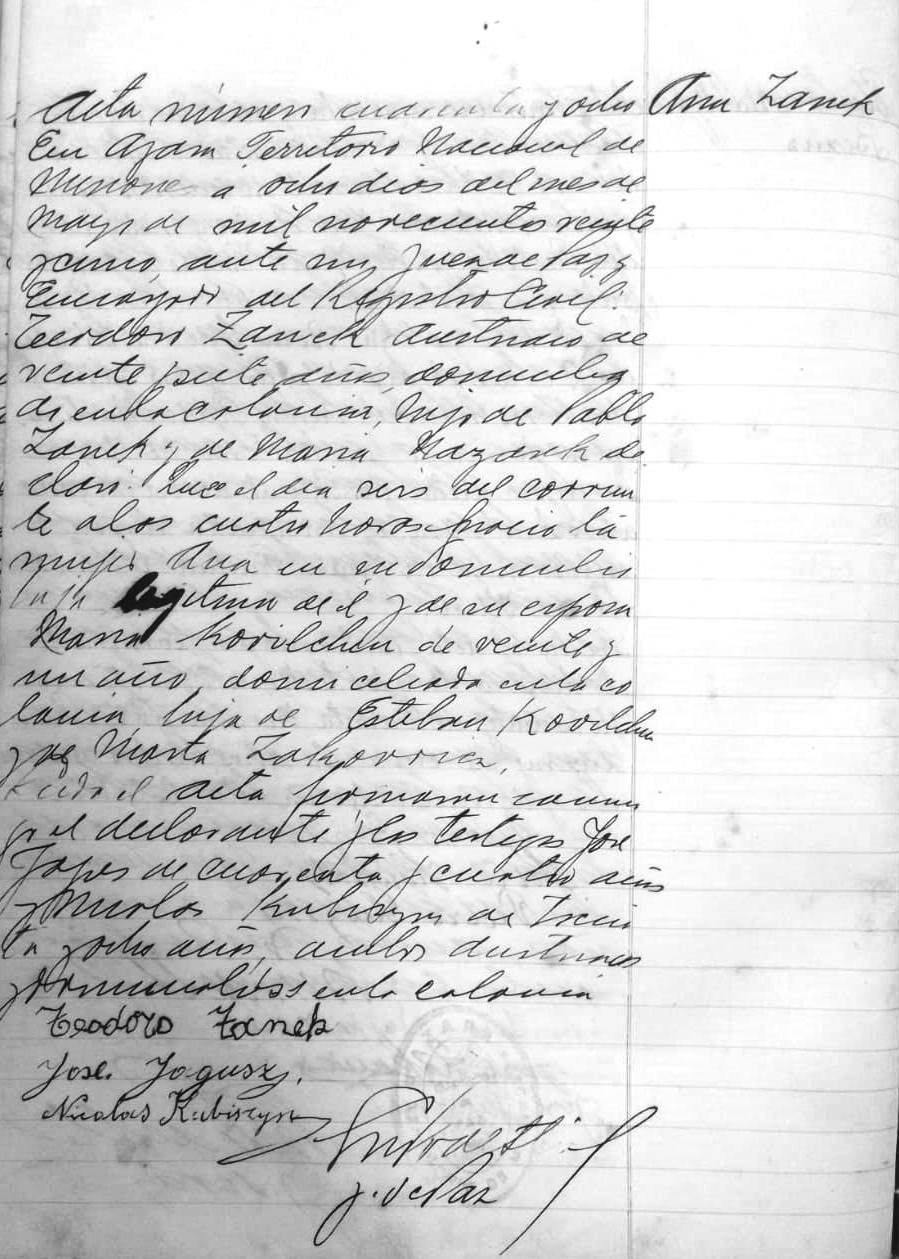 Acta número cuarenta y ocho Ana Zanek
En Azara Territorio Nacional de
Misiones a ocho dias del mes de
Mayo de mil novecientos veinte
y uno, ante mi, Juez de Paz y
Encargado del Registro Civil:
Teodoro Zanek austriaco de
veinte siete años, domicilia
do en la colonia, hijo de Pablo
Zanek y de Maria Kazanek de
claró: Que el dia seis del corrien
te a las cuatro horas nacio la
mujer Ana en su domicilio
hija legitima de él y de su esposa
Maria Kovilchen de veinte y
un año, domiciliada en la co
lonia hija de Esteban Kovilchen
y de Marta
Leida el acta firmaron conmi
go el declarante y los testigos José
de cuarenta y cuatro años
y Nicolas Kubiszyn de trein
ta y ocho años, ambos austriacos
y domiciliados en la colonia
Teodoro Zanek
Jose. Jagusz.
Nicolas Kubiszyn
J. de Paz